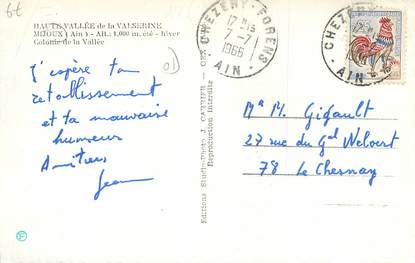 6€
HAUTE VALLÉE de la VALSERINE
MIJOUX (Ain) - Alt. 1.000 m. été - hiver
Colonie de la Vallée
J'espère ton
rétablissement
et ta mauvaise
humeur
Amitiés
Jean
Editions Studio-Photo J. CARRIER - GEX
Reproduction interdite
CHEZERY-FORENS
17H15
7-7
1966
AIN
CHEZERY-FORENS
AIN
0,25
Mr M. Gigault
27 rue du Gal Nelvert
78 Le Chesnay